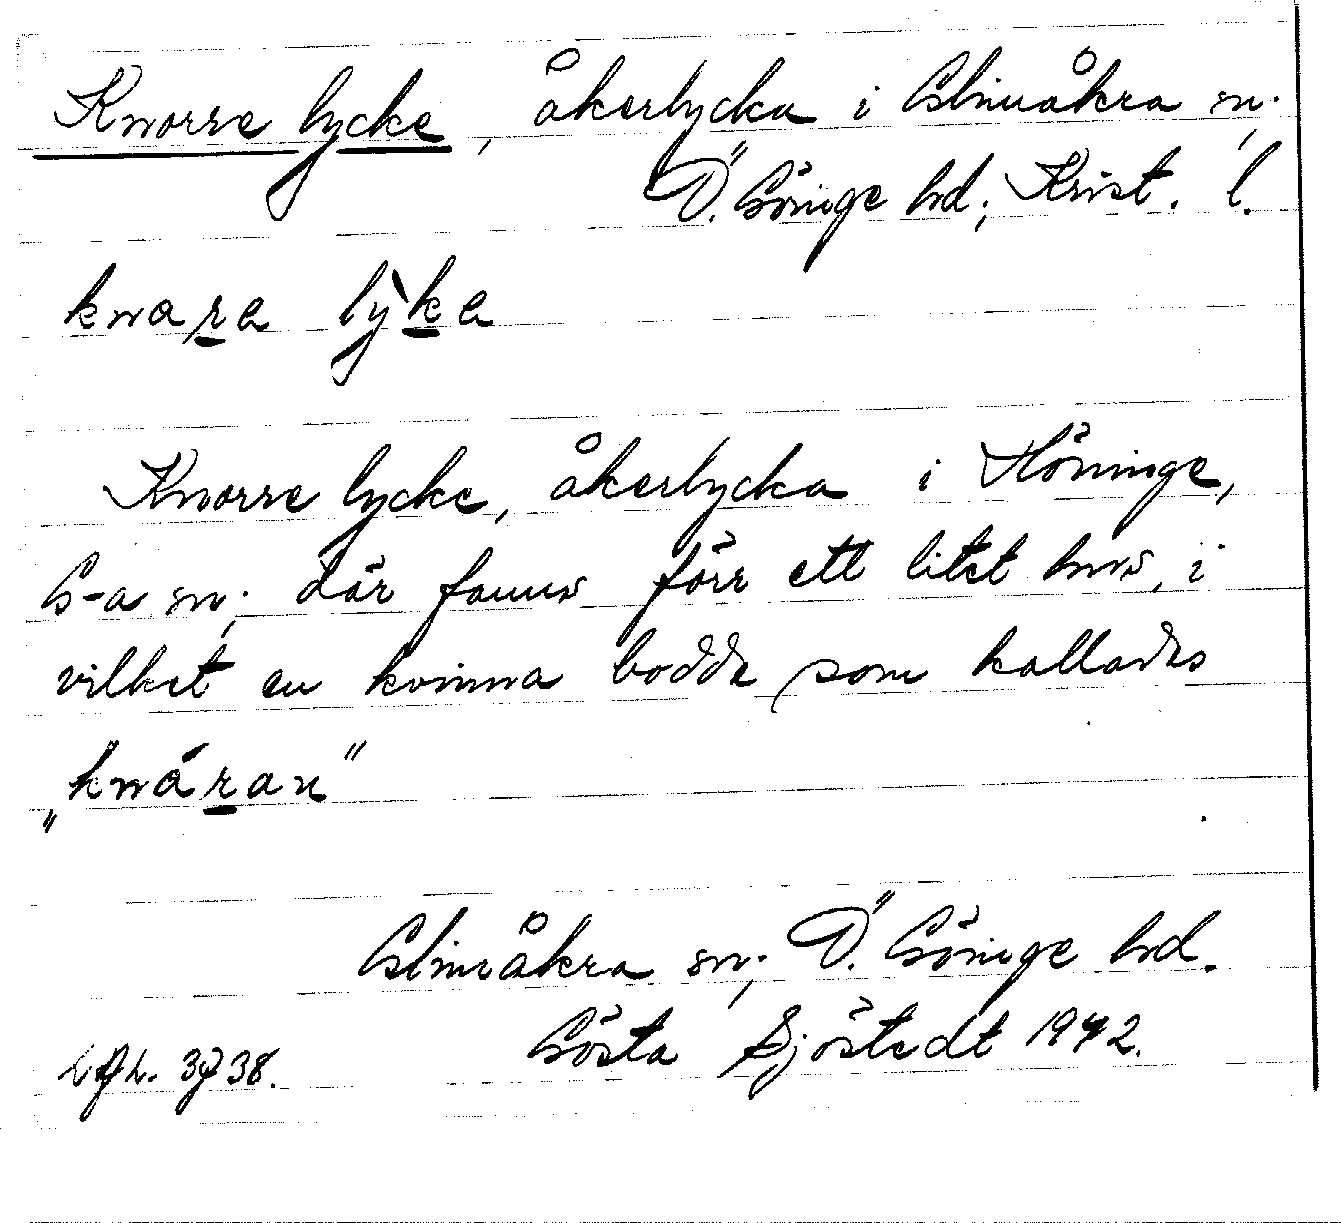 Knorre lycke, åkerlycka i Glimåkra sn.,
Ö. Göinge hd., Krist. l.
knara lỳka
Knorre lycke, åkerlycka i Höninge,
G-a sn., där fanns förr ett litet hus, i
vilket en kvinna bodde som kallades
„knáran"
Glimåkra sn., Ö. Göinge hd.
Gösta Sjöstedt 1942.